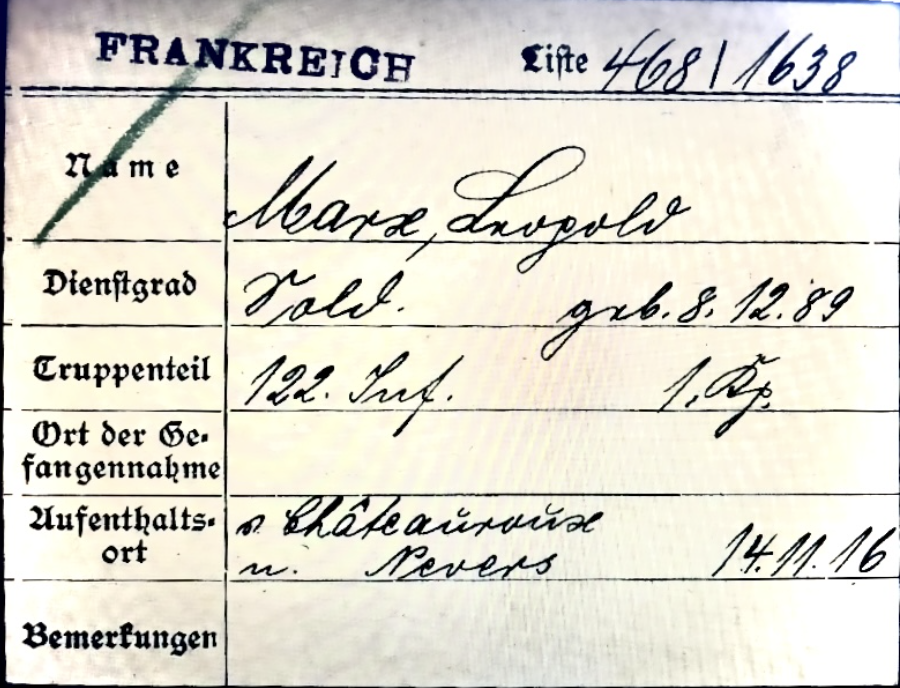 FRANKREICH Liste 468 / 1638
Name Marx, Leopold
Dienstgrad Sold. geb. 8. 12. 89
Truppenteil 122. Inf. 1. Kp.
Ort der Ge-
fangennahme
Aufenthalts- v. Châteauroux
ort n. Nevers 14. 11. 16
Bemerkungen